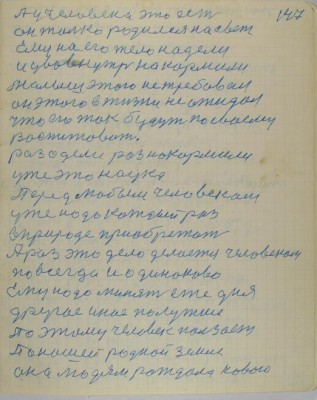 147
А у человека это ест
он только родился на свет
Ему на его тело надели
и во внутр накормили
Малыш этого нетребовал
он этого в жизни не ожидал
что его так будут посваему
Воспитоват.
раз одели раз накормили
уже это наука
Перед любым человеком
уже надо каждый раз
в природе приобретат
А раз это дело делается человеком
то всегда и одиноково
Ему надо менят еже дня
другое иное получше
По этому человек ползает
По нашей родной Земле
она людям рождала нового